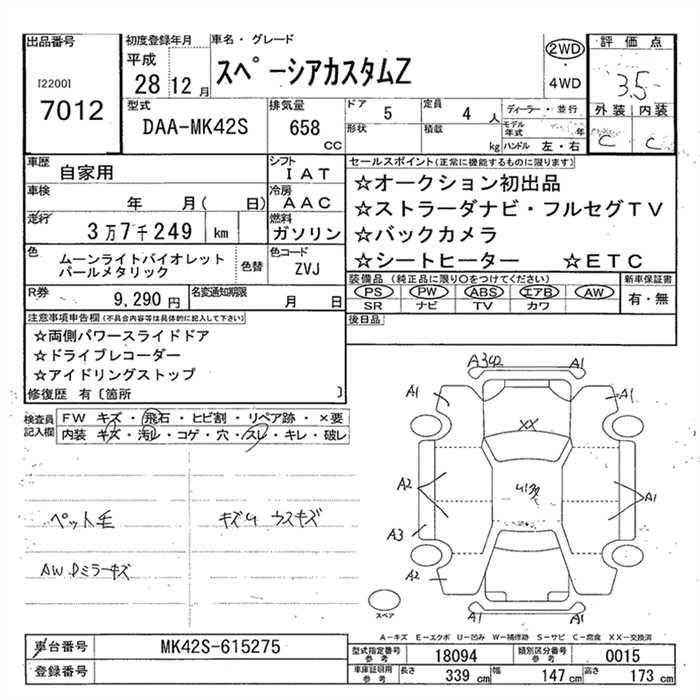 出品番号 初度登録年月 車名・グレード 2WD 評価点
[2200] 平成 ・ 3.5
7012 28 12月 スペーシアカスタムZ 4WD 外装 内装
型式 排気量 ドア 5 定員 4人 ディーラー・並行 C C
DAA-MK42S 658 cc 形状 積載 kg モデル年式 年
ハンドル 左・右
車歴 自家用 シフト IAT セールスポイント(正常に機能するものに限ります)
車検 年 月( 日) 冷房 AAC ☆オークション初出品
走行 3万7千249 km 燃料 ガソリン ☆ストラーダナビ・フルセグTV
色 ムーンライトバイオレットパールメタリック 色替 色コード ZVJ ☆バックカメラ
☆シートヒーター ☆ETC
R券 9,290円 名変通知期限 月 日 装備品 (純正品に限り○をつけてください) 新車保証書
PS PW ABS エアB AW 有・無
SR ナビ TV カワ
注意事項申告欄(不具合内容等は具体的に記入して下さい) 後日品
☆両側パワースライドドア
☆ドライブレコーダー
☆アイドリングストップ
修復歴 有〔箇所 〕
検査員記入欄 FW キズ・飛石・ヒビ割・リペア跡・×要
内装 キズ・汚レ・コゲ・穴・スレ・キレ・破レ
A342 A1
A1 A1
XX
A2 A1
A3
A2
A1 A1
ペット毛 キズ ウスキズ
AW ミラーキズ
スペア
A-キズ E-エクボ U-凹み W-補修跡 S-サビ C-腐食 XX-交換済
車台番号 MK42S-615275 型式指定番号 参考 18094 類別区分番号 参考 0015
登録番号 車庫証明用 参考 長さ 339 cm 幅 147 cm 高さ 173 cm